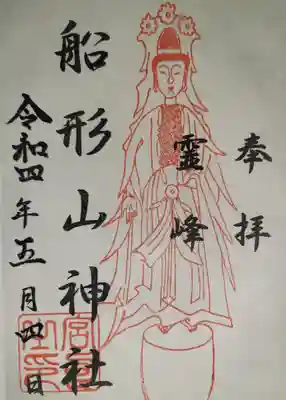 奉拝
霊峰
船形山神社
令和四年五月四日